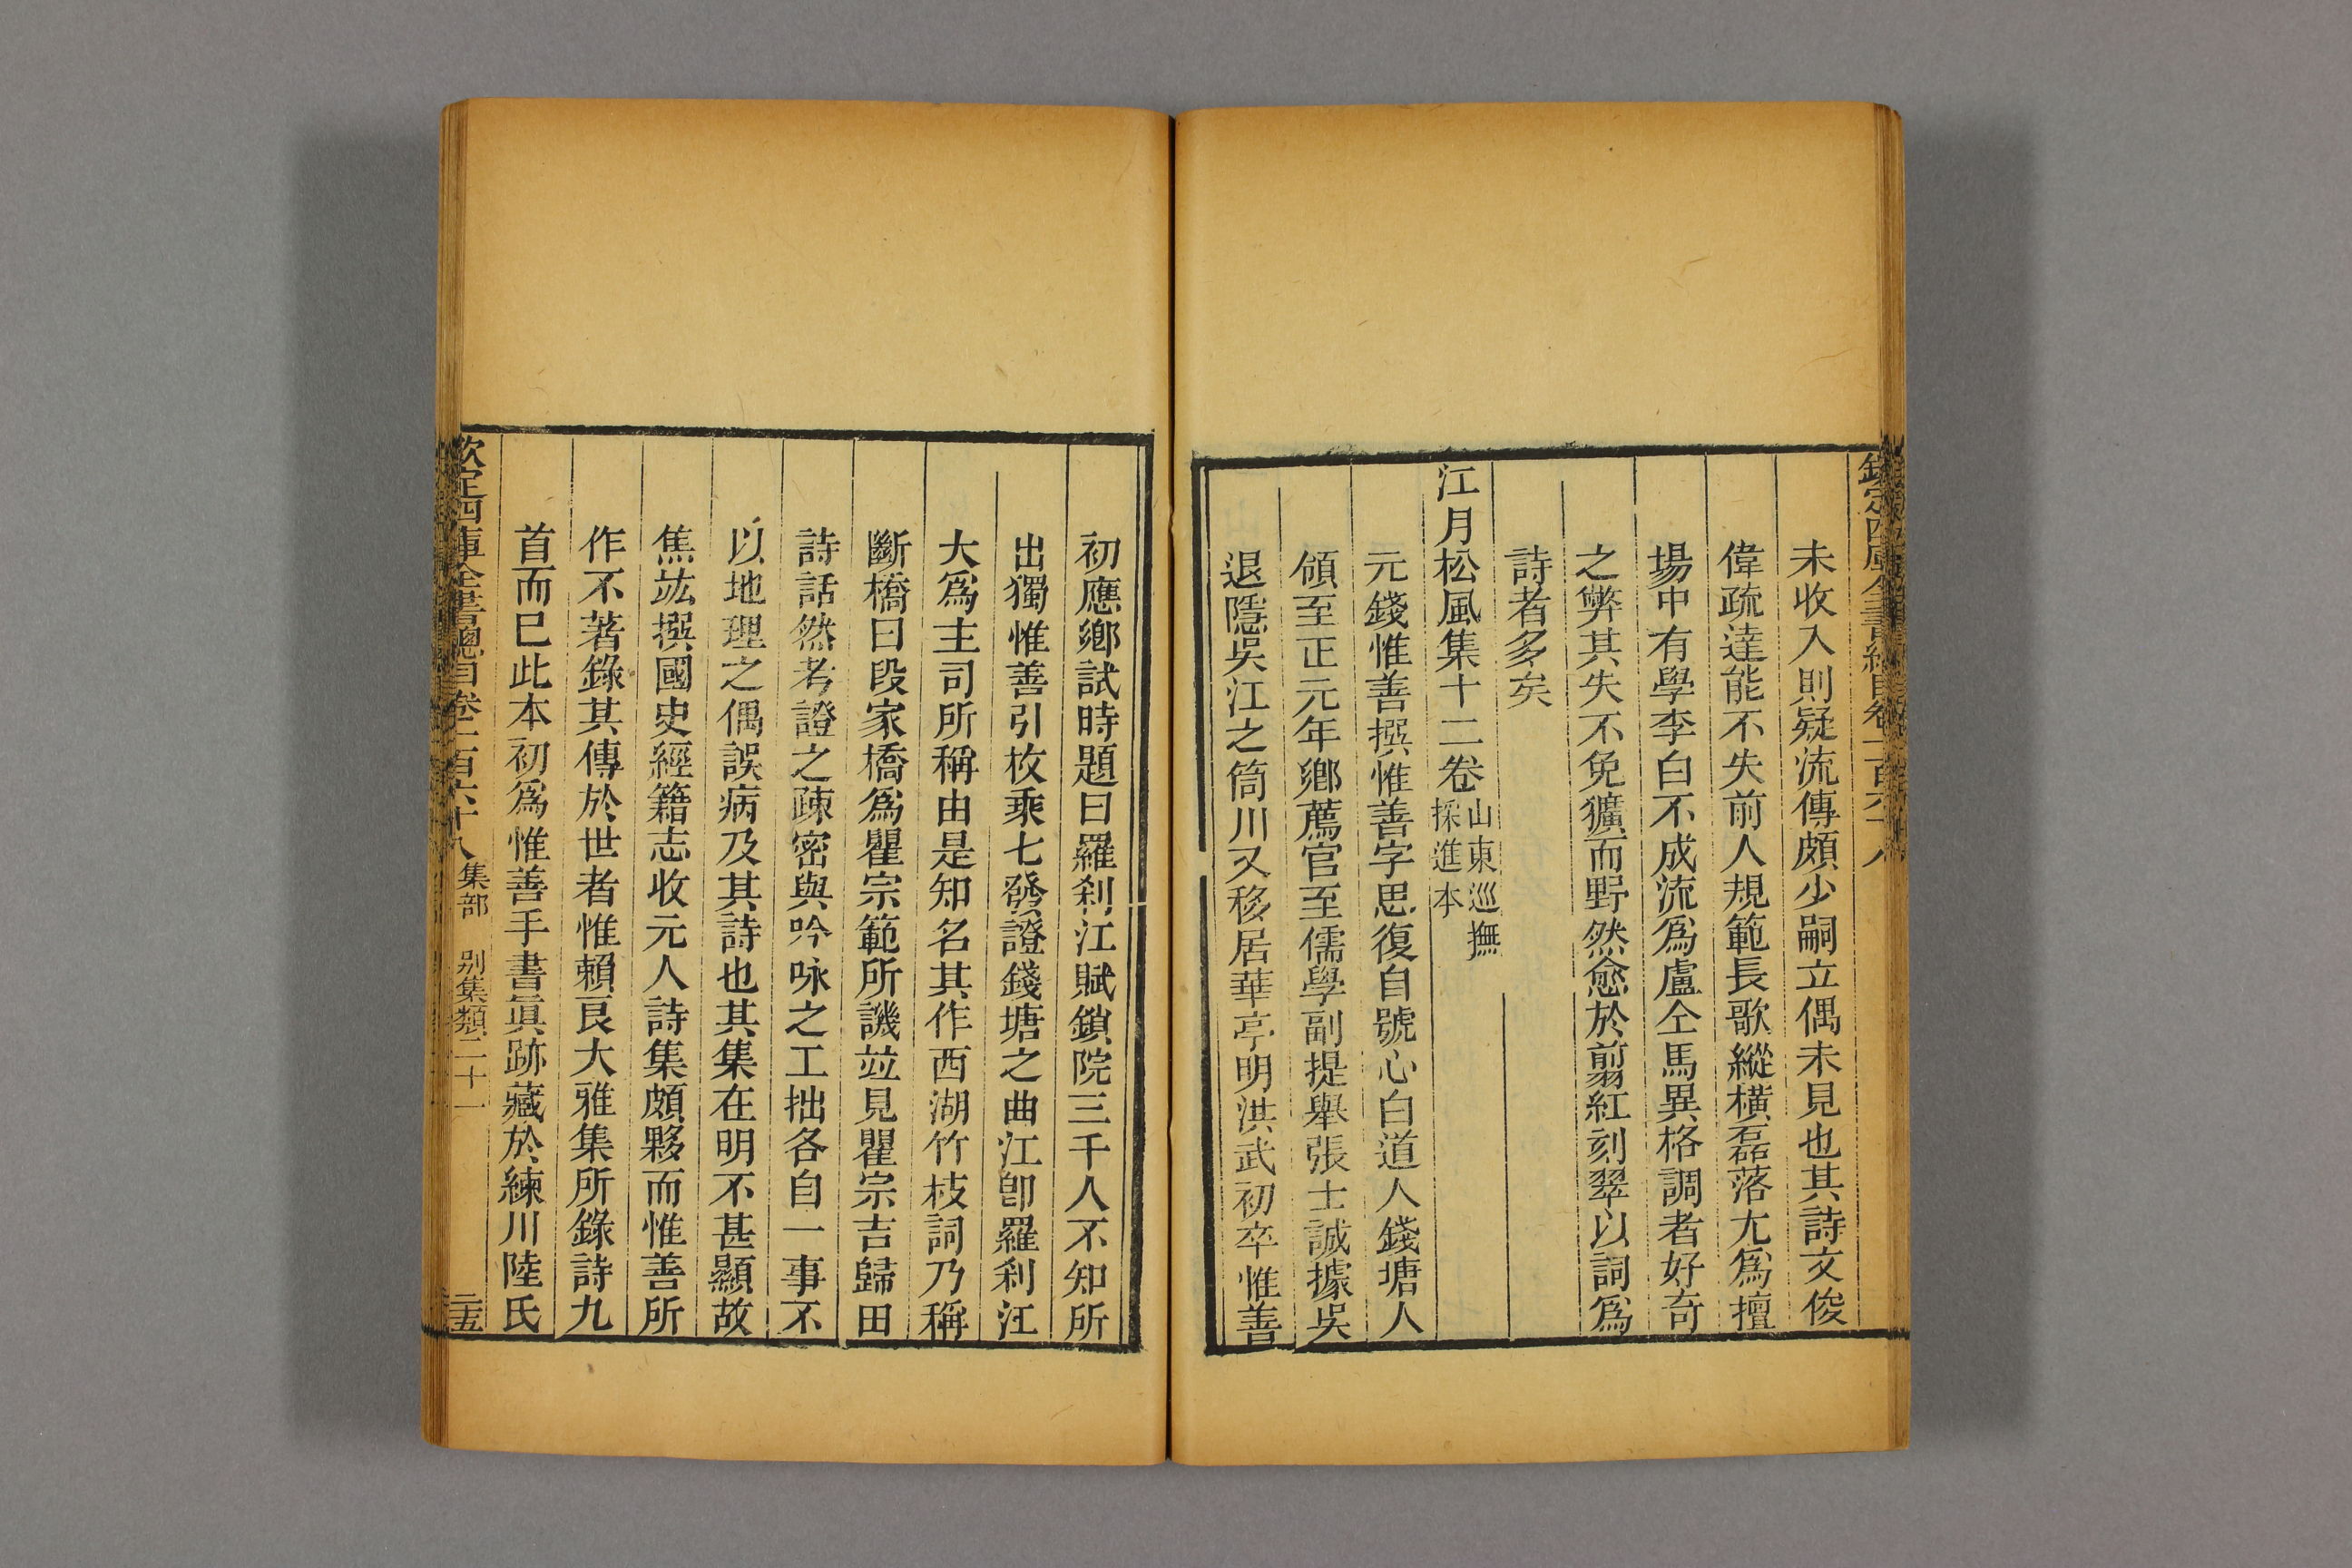 欽定四庫全書總目卷一百六十八
未收入則疑流傳頗少嗣立偶未見也其詩文俊
偉疏達能不失前人規範長歌縱橫磊落尤爲擅
場中有學李白不成流爲盧仝馬異格調者好奇
之弊其失不免獷而野然愈於翦紅刻翠以詞爲
詩者多矣
江月松風集十二卷山東巡撫採進本
元錢惟善撰惟善字思復自號心白道人錢塘人
領至正元年鄉薦官至儒學副提舉張士誠據吳
退隱吳江之筒川又移居華亭明洪武初卒惟善
初應鄉試時題曰羅刹江賦鎖院三千人不知所
出獨惟善引枚乘七發證錢塘之曲江卽羅刹江
大爲主司所稱由是知名其作西湖竹枝詞乃稱
斷橋曰段家橋爲瞿宗範所譏竝見瞿宗吉歸田
詩話然考證之疎密與吟咏之工拙各自一事不
以地理之偶誤病及其詩也其集在明不甚顯故
焦竑撰國史經籍志收元人詩集頗夥而惟善所
作不著錄其傳於世者惟賴良大雅集所錄詩九
首而已此本初爲惟善手書眞跡藏於練川陸氏
欽定四庫全書總目卷一百六十八 集部 别集類二十一 二五